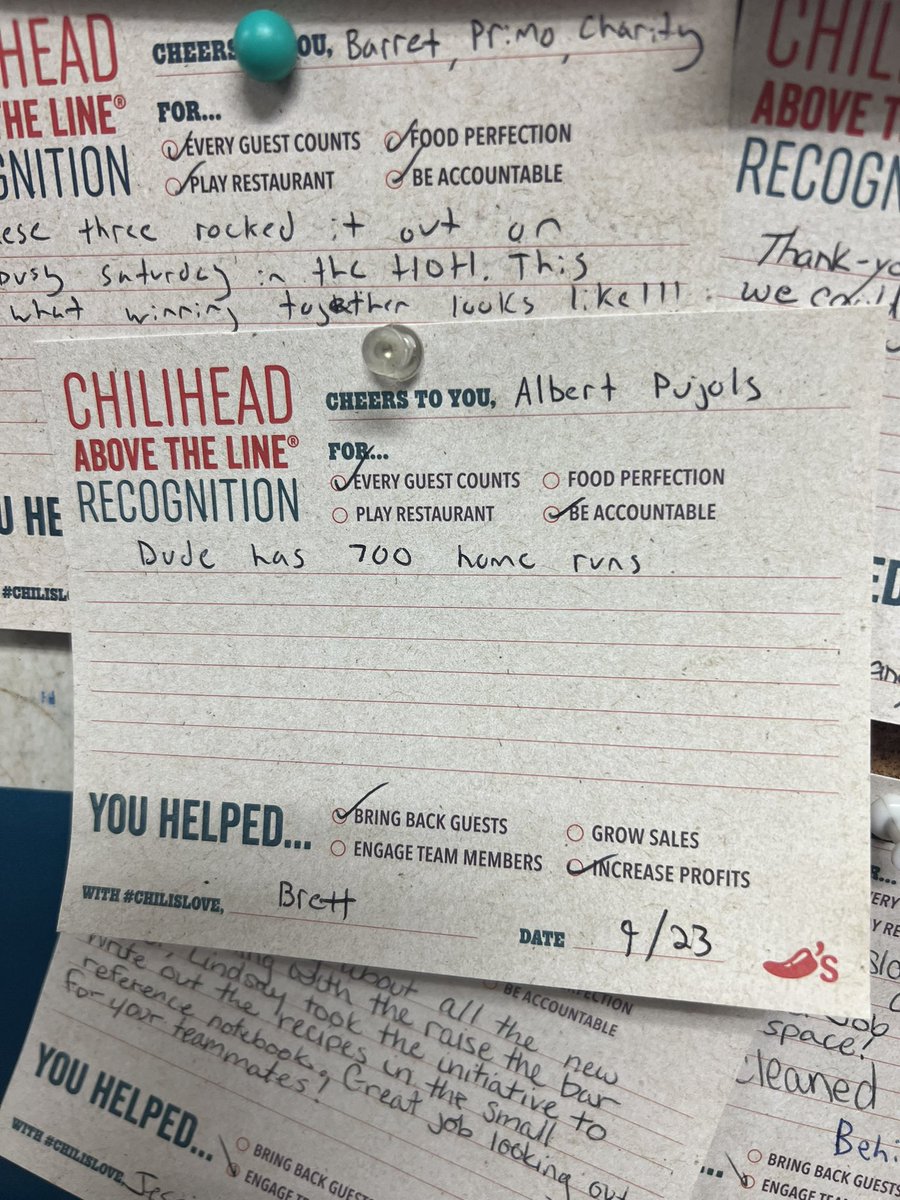 HEAD
THE LINE®
GNITION
CHEERS YOU, Barret, Primo, Charity
FOR...
EVERY GUEST COUNTS FOOD PERFECTION
PLAY RESTAURANT BE ACCOUNTABLE
three rocked it out on
Saturday in the HOH. This
what winning together looks like!!!
U HE
#CHILISL
CHIL
ABOVE T
RECOGN
Thank-yo
we
CHILIHEAD
ABOVE THE LINE®
RECOGNITION
CHEERS TO YOU, Albert Pujols
FOR...
EVERY GUEST COUNTS FOOD PERFECTION
PLAY RESTAURANT BE ACCOUNTABLE
Dude has 700 home runs
YOU HELPED...
BRING BACK GUESTS GROW SALES
ENGAGE TEAM MEMBERS INCREASE PROFITS
WITH #CHILISLOVE, Brett
DATE 9/23
'S
BE ACCOUNTABLE
about all the new
with the raise the bar
Lindsay took the initiative to
write out the recipes in the small
reference notebook. Great job looking out
for your teammates!
YOU HELPED...
BRING BACK GUESTS
ENGAGE TE
WITH #CHILISLOVE,
job
space!
cleaned
Behi
BRING BACK GUESTS
ENGAGE TEAM MEMBERS